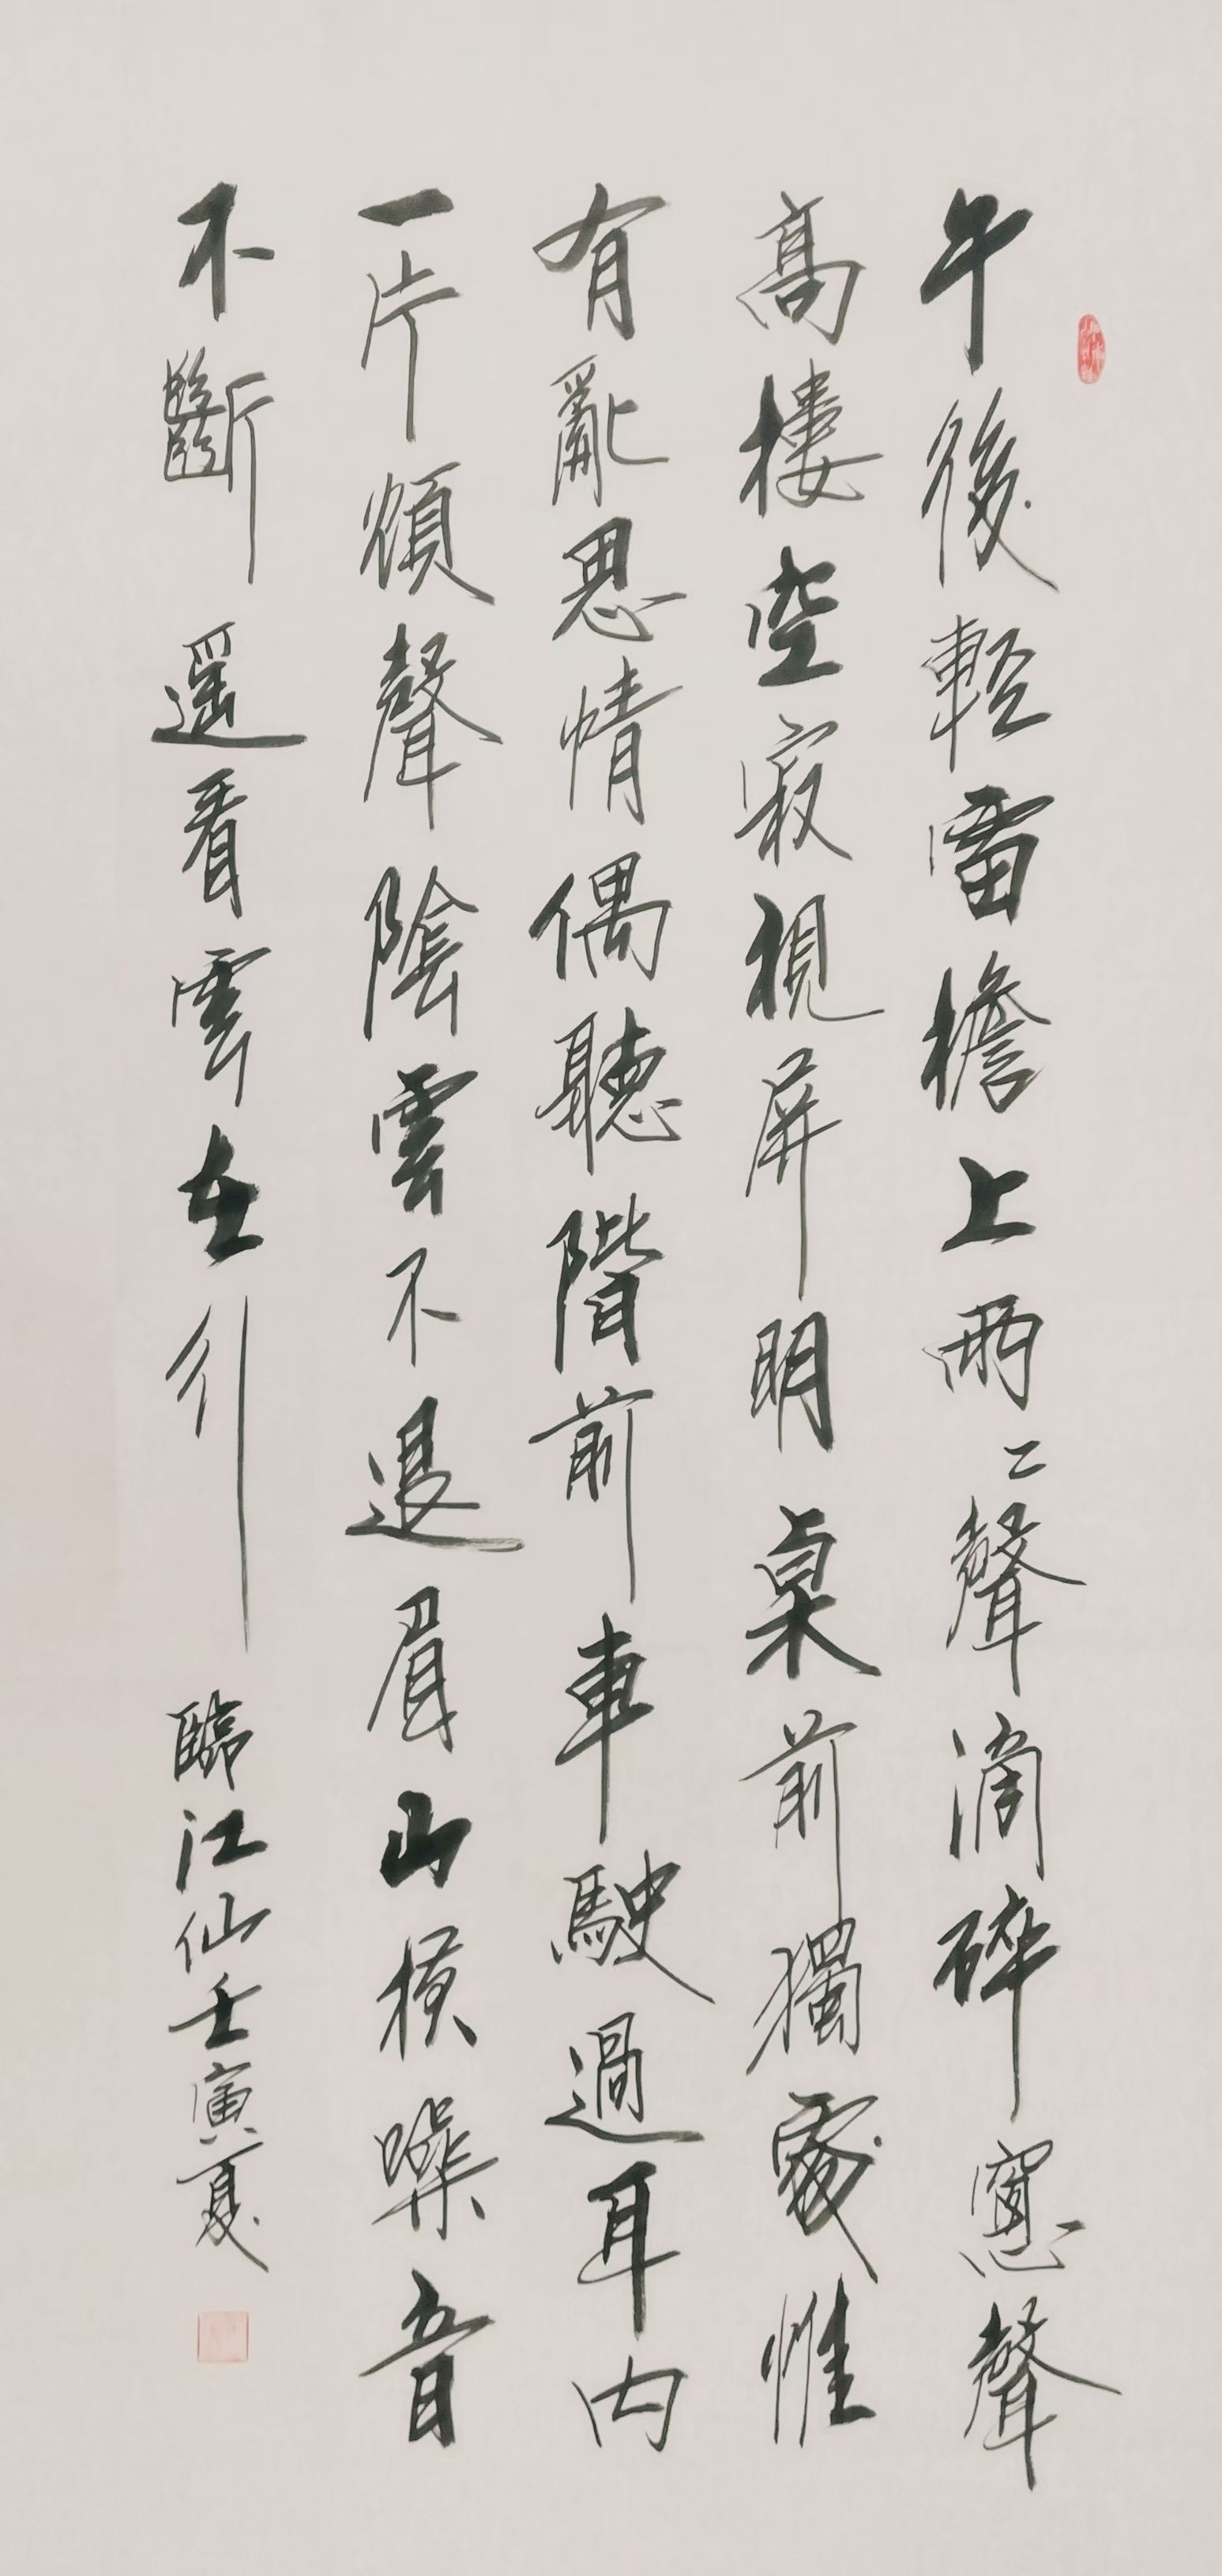 午後輕雷檐上雨〻聲滴碎窻聲
高樓空寂視屏明桌前獨處惟
有亂思情偶聽階前車駛過耳內
一片煩聲陰雲不退眉山橫噪音
不斷遥看雲在行臨江仙壬寅夏